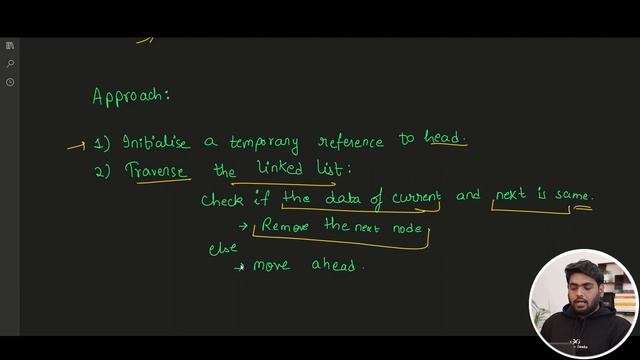 Approach:
→ 1) Initialise a temporary reference to head.
2) Traverse the linked list:
check if the data of current and next is same.
→ Remove the next node
else
→ move ahead.